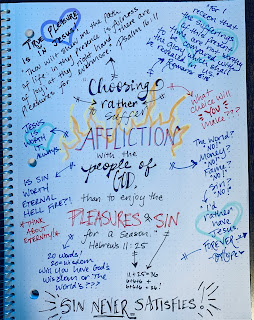 TRUE PLEASURE
is in Jesus!
"Thou wilt shew me the path
of life: in thy presence is fullness
of joy; at thy right hand there are
pleasures for evermore."
Psalms 16:11
"For I
reckon that
the sufferings
of this present
time are not
worthy to
be compared
with the
glory which shall
be revealed
in us."
Romans 8:18
Choosing
rather to
suffer
AFFLICTION
with the
people of
GOD,
than to enjoy the
PLEASURES of SIN
for a season.
Hebrews 11:25
11+25=36
6+6+6
6+6+6=36!
Jesus
is worth
it
IS SIN
WORTH
ETERNAL
HELL FIRE?!
*THINK
ABOUT
ETERNITY!
20 words!
20=Wisdom
Will you have God's
Wisdom or the
World's???
What
choice will
YOU
make???
The World?
NO!
Money?
NO!
Fame?
NO!
Sin?
NO!
I'd
rather
have
Jesus.
FOREVER
SIN NEVER SATISFIES!